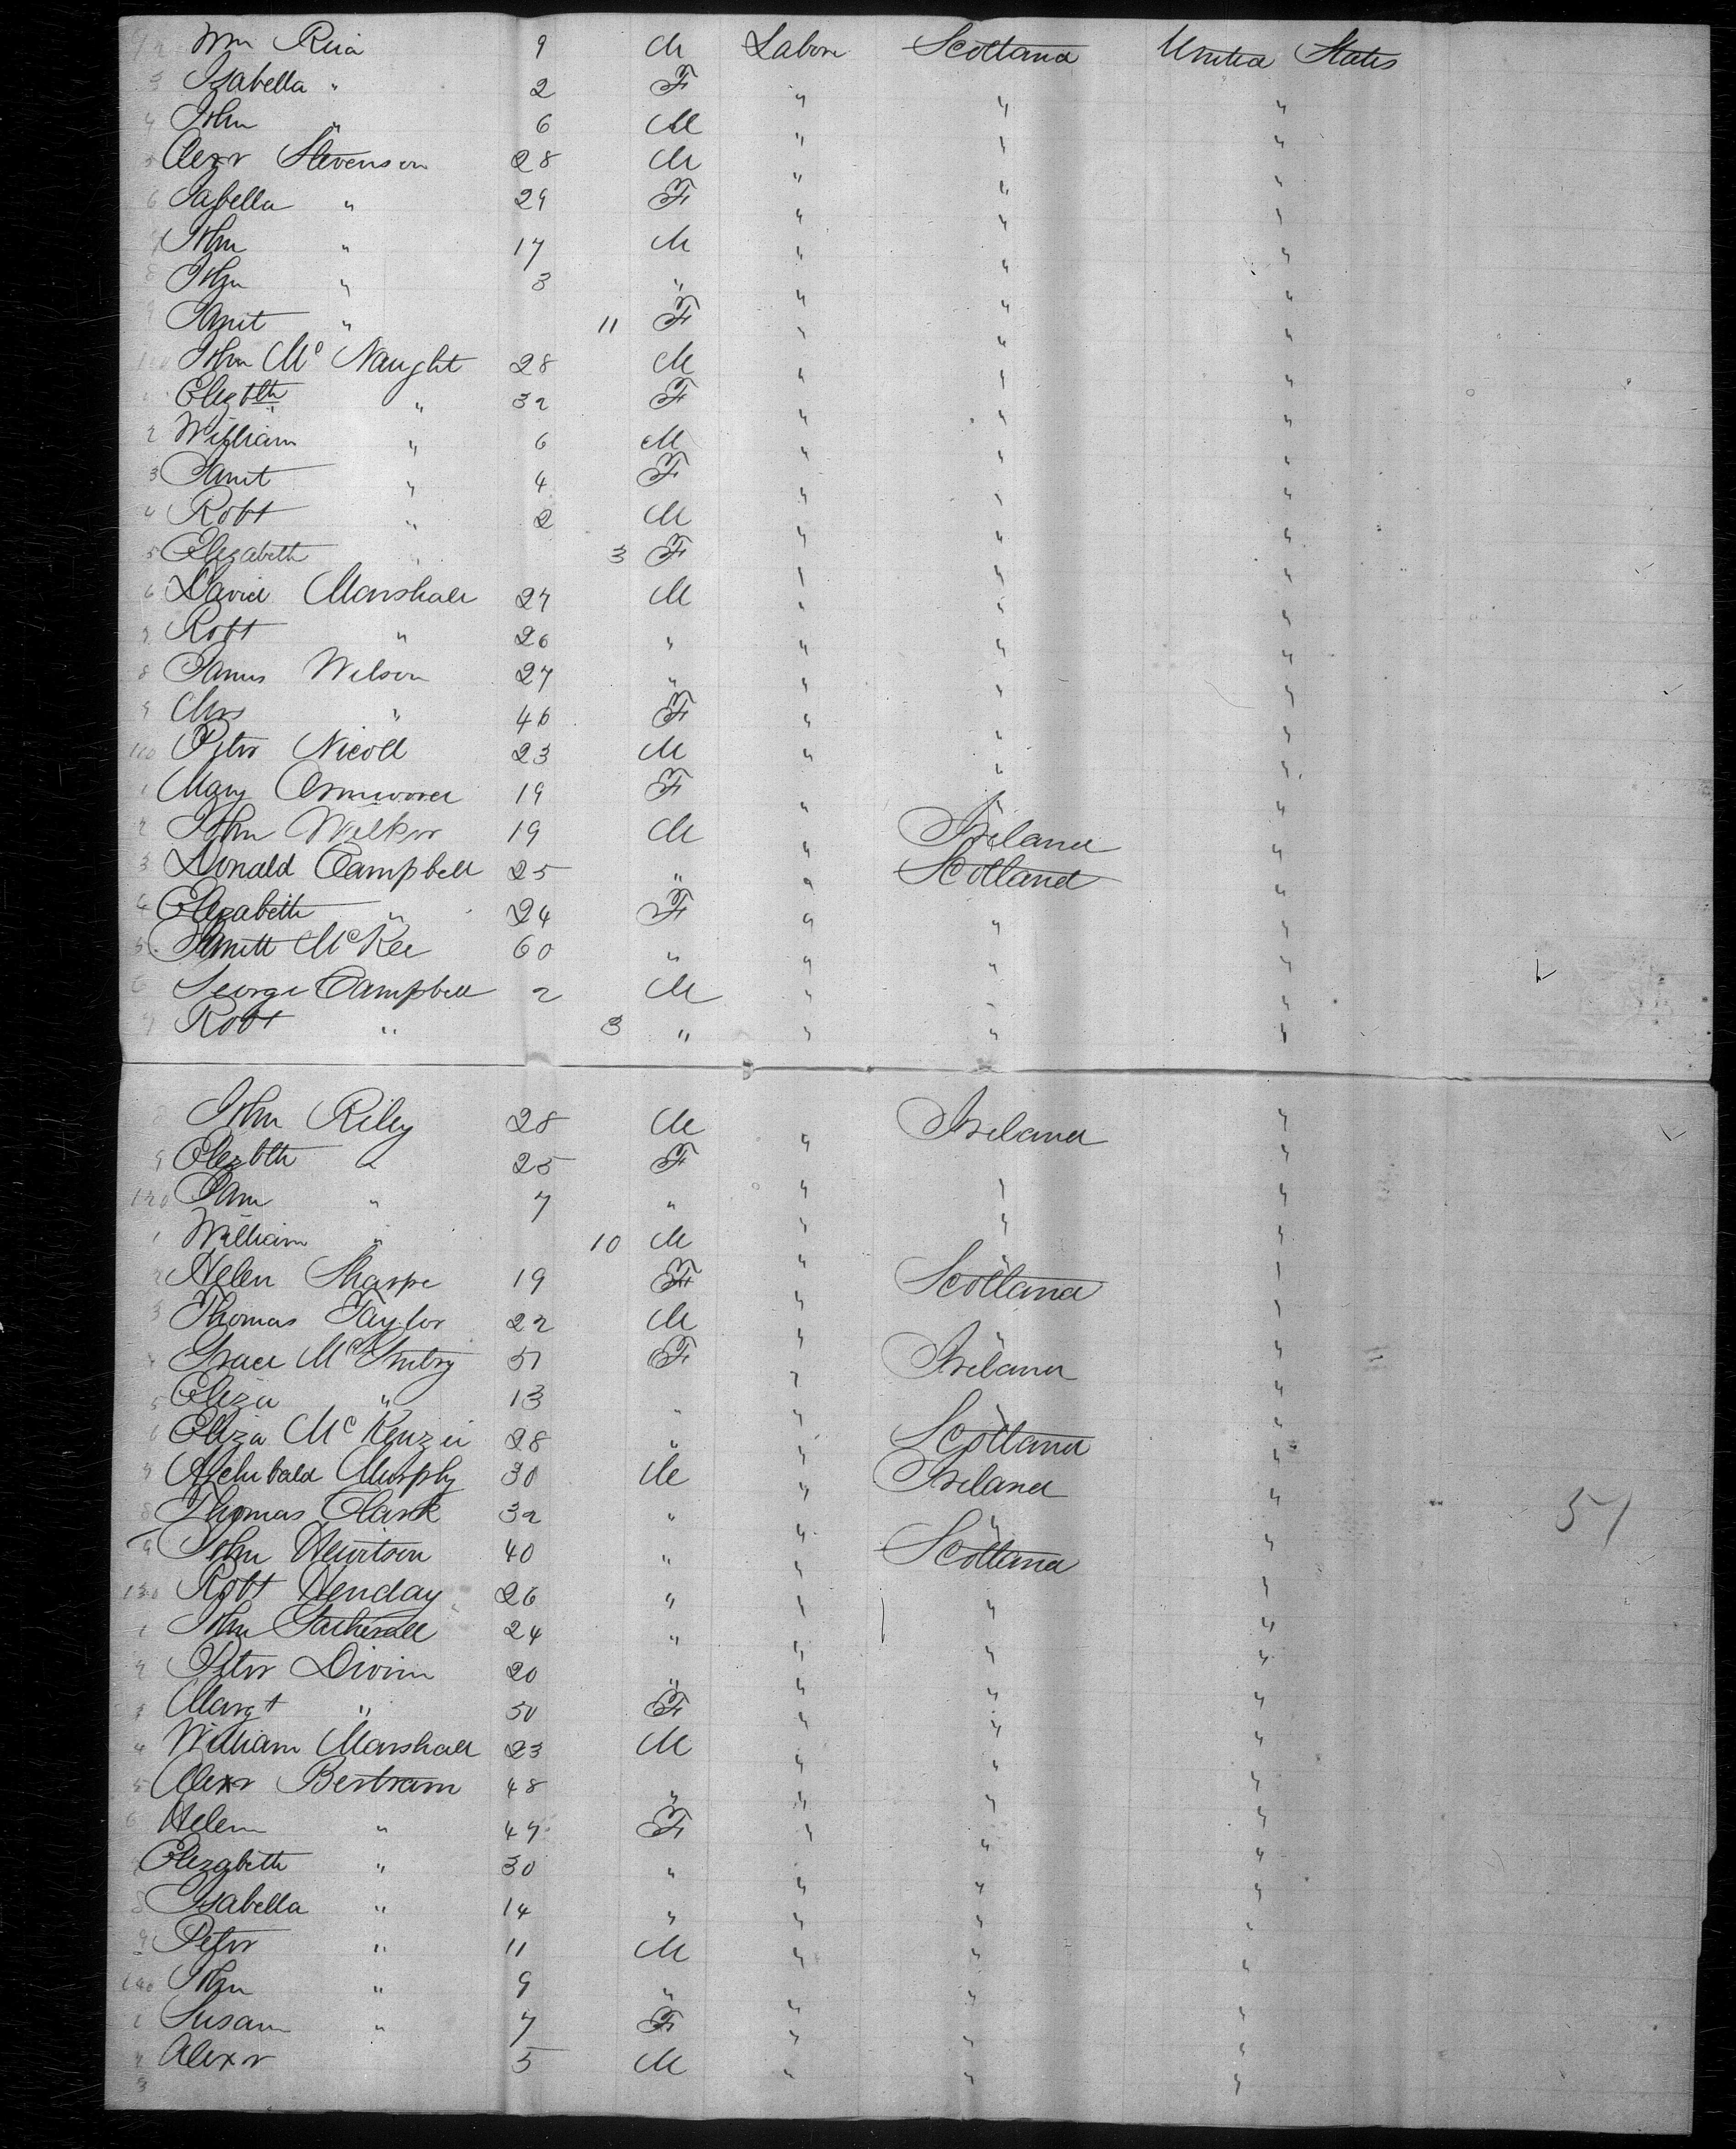 92 Wm Reid 9 M Labore Scotland United States
3 Isabella " 2 F " " "
4 John " 6 M " " "
5 Alexr Stevenson 28 M " " "
6 Isabella " 29 F " " "
7 John " 17 M " " "
8 John " 3 " " " "
9 Janet " 11 F " " "
100 John Mc Naught 28 M " " "
1 Elizbth " 32 F " " "
2 William " 6 M " " "
3 Janet " 4 F " " "
4 Robt " 2 M " " "
5 Elizabeth " 3 F " " "
6 David Marshall 27 M " " "
7 Robt " 26 " " " "
8 James Wilson 27 " " " "
9 Mrs " 46 F " " "
110 Peter Nicoll 23 M " " "
1 Mary 19 F " " "
2 John Welker 19 M " Ireland "
3 Donald Campbell 25 " " Scotland "
4 Elizabeth " 24 F " " "
5 Janett McKee 60 " " " "
6 George Campbell 2 M " " "
7 Robt " 3 " " " "
8 John Riley 28 M " Ireland "
9 Elizbth " 25 F " " "
120 Jane " 7 " " " "
1 William " 10 M " " "
2 Helen Sharpe 19 F " Scotland "
3 Thomas Taylor 22 M " " "
4 Grace 51 F " Ireland "
5 Eliza " 13 " " " "
6 Eliza McKenzie 28 " " Scotland "
7 Archibald Murphy 30 M " Ireland "
8 Thomas Clark 32 " " " " 51
9 John Hewitson 40 " " Scotland "
130 Robt Henday 26 " " " "
1 John 24 " " " "
2 Peter Divin 20 " " " "
3 Margt " 50 F " " "
4 William Marshall 23 M " " "
5 Alexr Bertram 48 " " " "
6 Helen " 47 F " " "
7 Elizabeth " 30 " " " "
8 Isabella " 14 " " " "
9 Peter " 11 M " " "
140 John " 9 " " " "
1 Susan " 7 F " " "
2 Alexr 5 M " " "
3